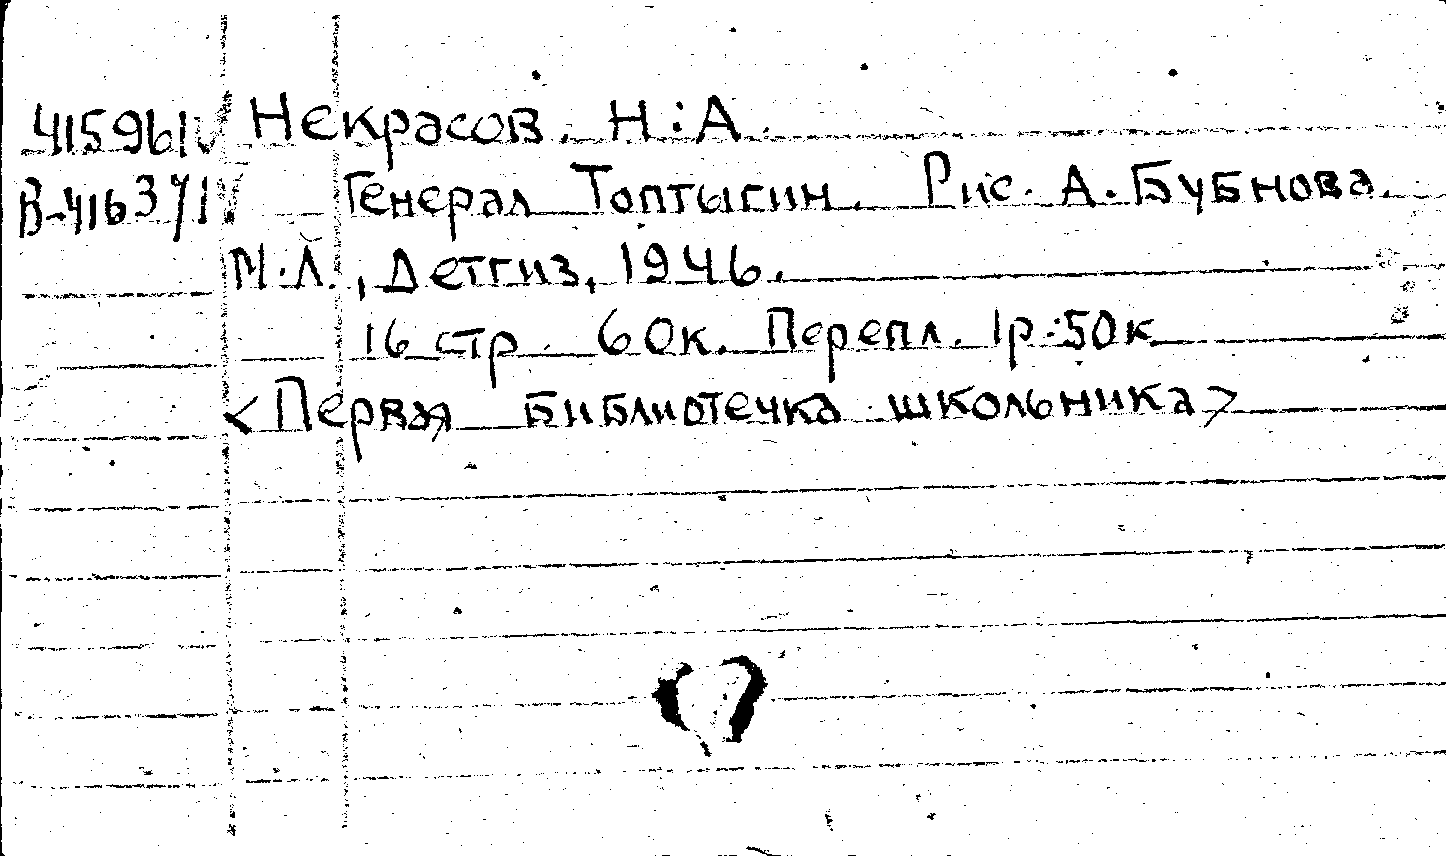 415961 Некрасов. Н.А.
В-416371 Генерал Топтыгин. Рис. А. Бубнова.
М.Л., Детгиз, 1946.
16 стр. 60к. Перепл. 1р.50к
<Первая библиотечка школьника>